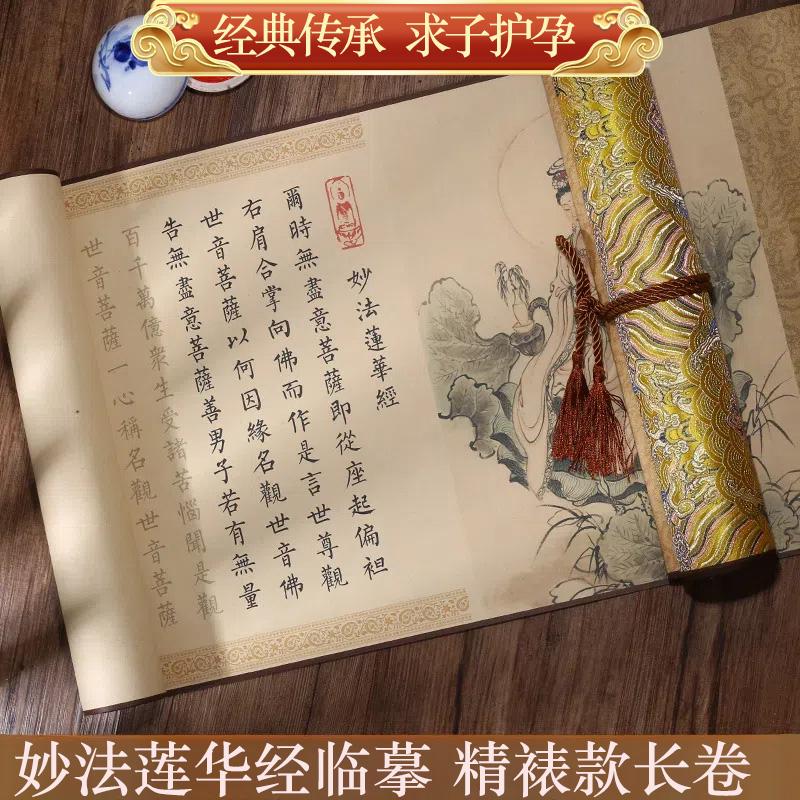 经典传承 求子护孕
妙法蓮華經
爾時無盡意菩薩即從座起偏袒
右肩合掌向佛而作是言世尊觀
世音菩薩以何因緣名觀世音佛
告無盡意菩薩善男子若有無量
百千萬億衆生受諸苦惱聞是觀
世音菩薩一心稱名觀世音菩薩
妙法莲华经临摹 精裱款长卷